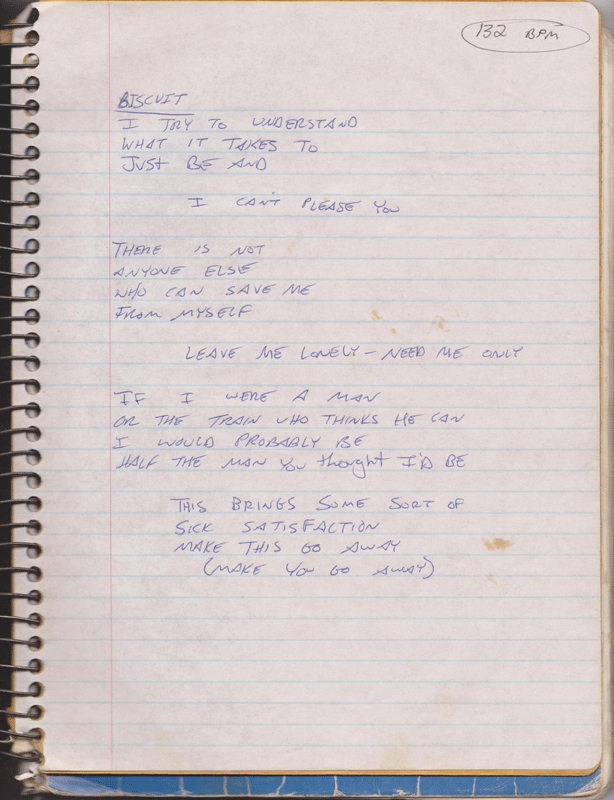 132 BPM
BISCUIT
I TRY TO UNDERSTAND
WHAT IT TAKES TO
JUST BE AND
I CAN'T PLEASE YOU
THERE IS NOT
ANYONE ELSE
WHO CAN SAVE ME
FROM MYSELF
LEAVE ME LONELY - NEED ME ONLY
IF I WERE A MAN
OR THE TRAIN WHO THINKS HE CAN
I WOULD PROBABLY BE
HALF THE MAN YOU thought I'D BE
THIS BRINGS SOME SORT OF
SICK SATISFACTION
MAKE THIS GO AWAY
(MAKE YOU GO AWAY)